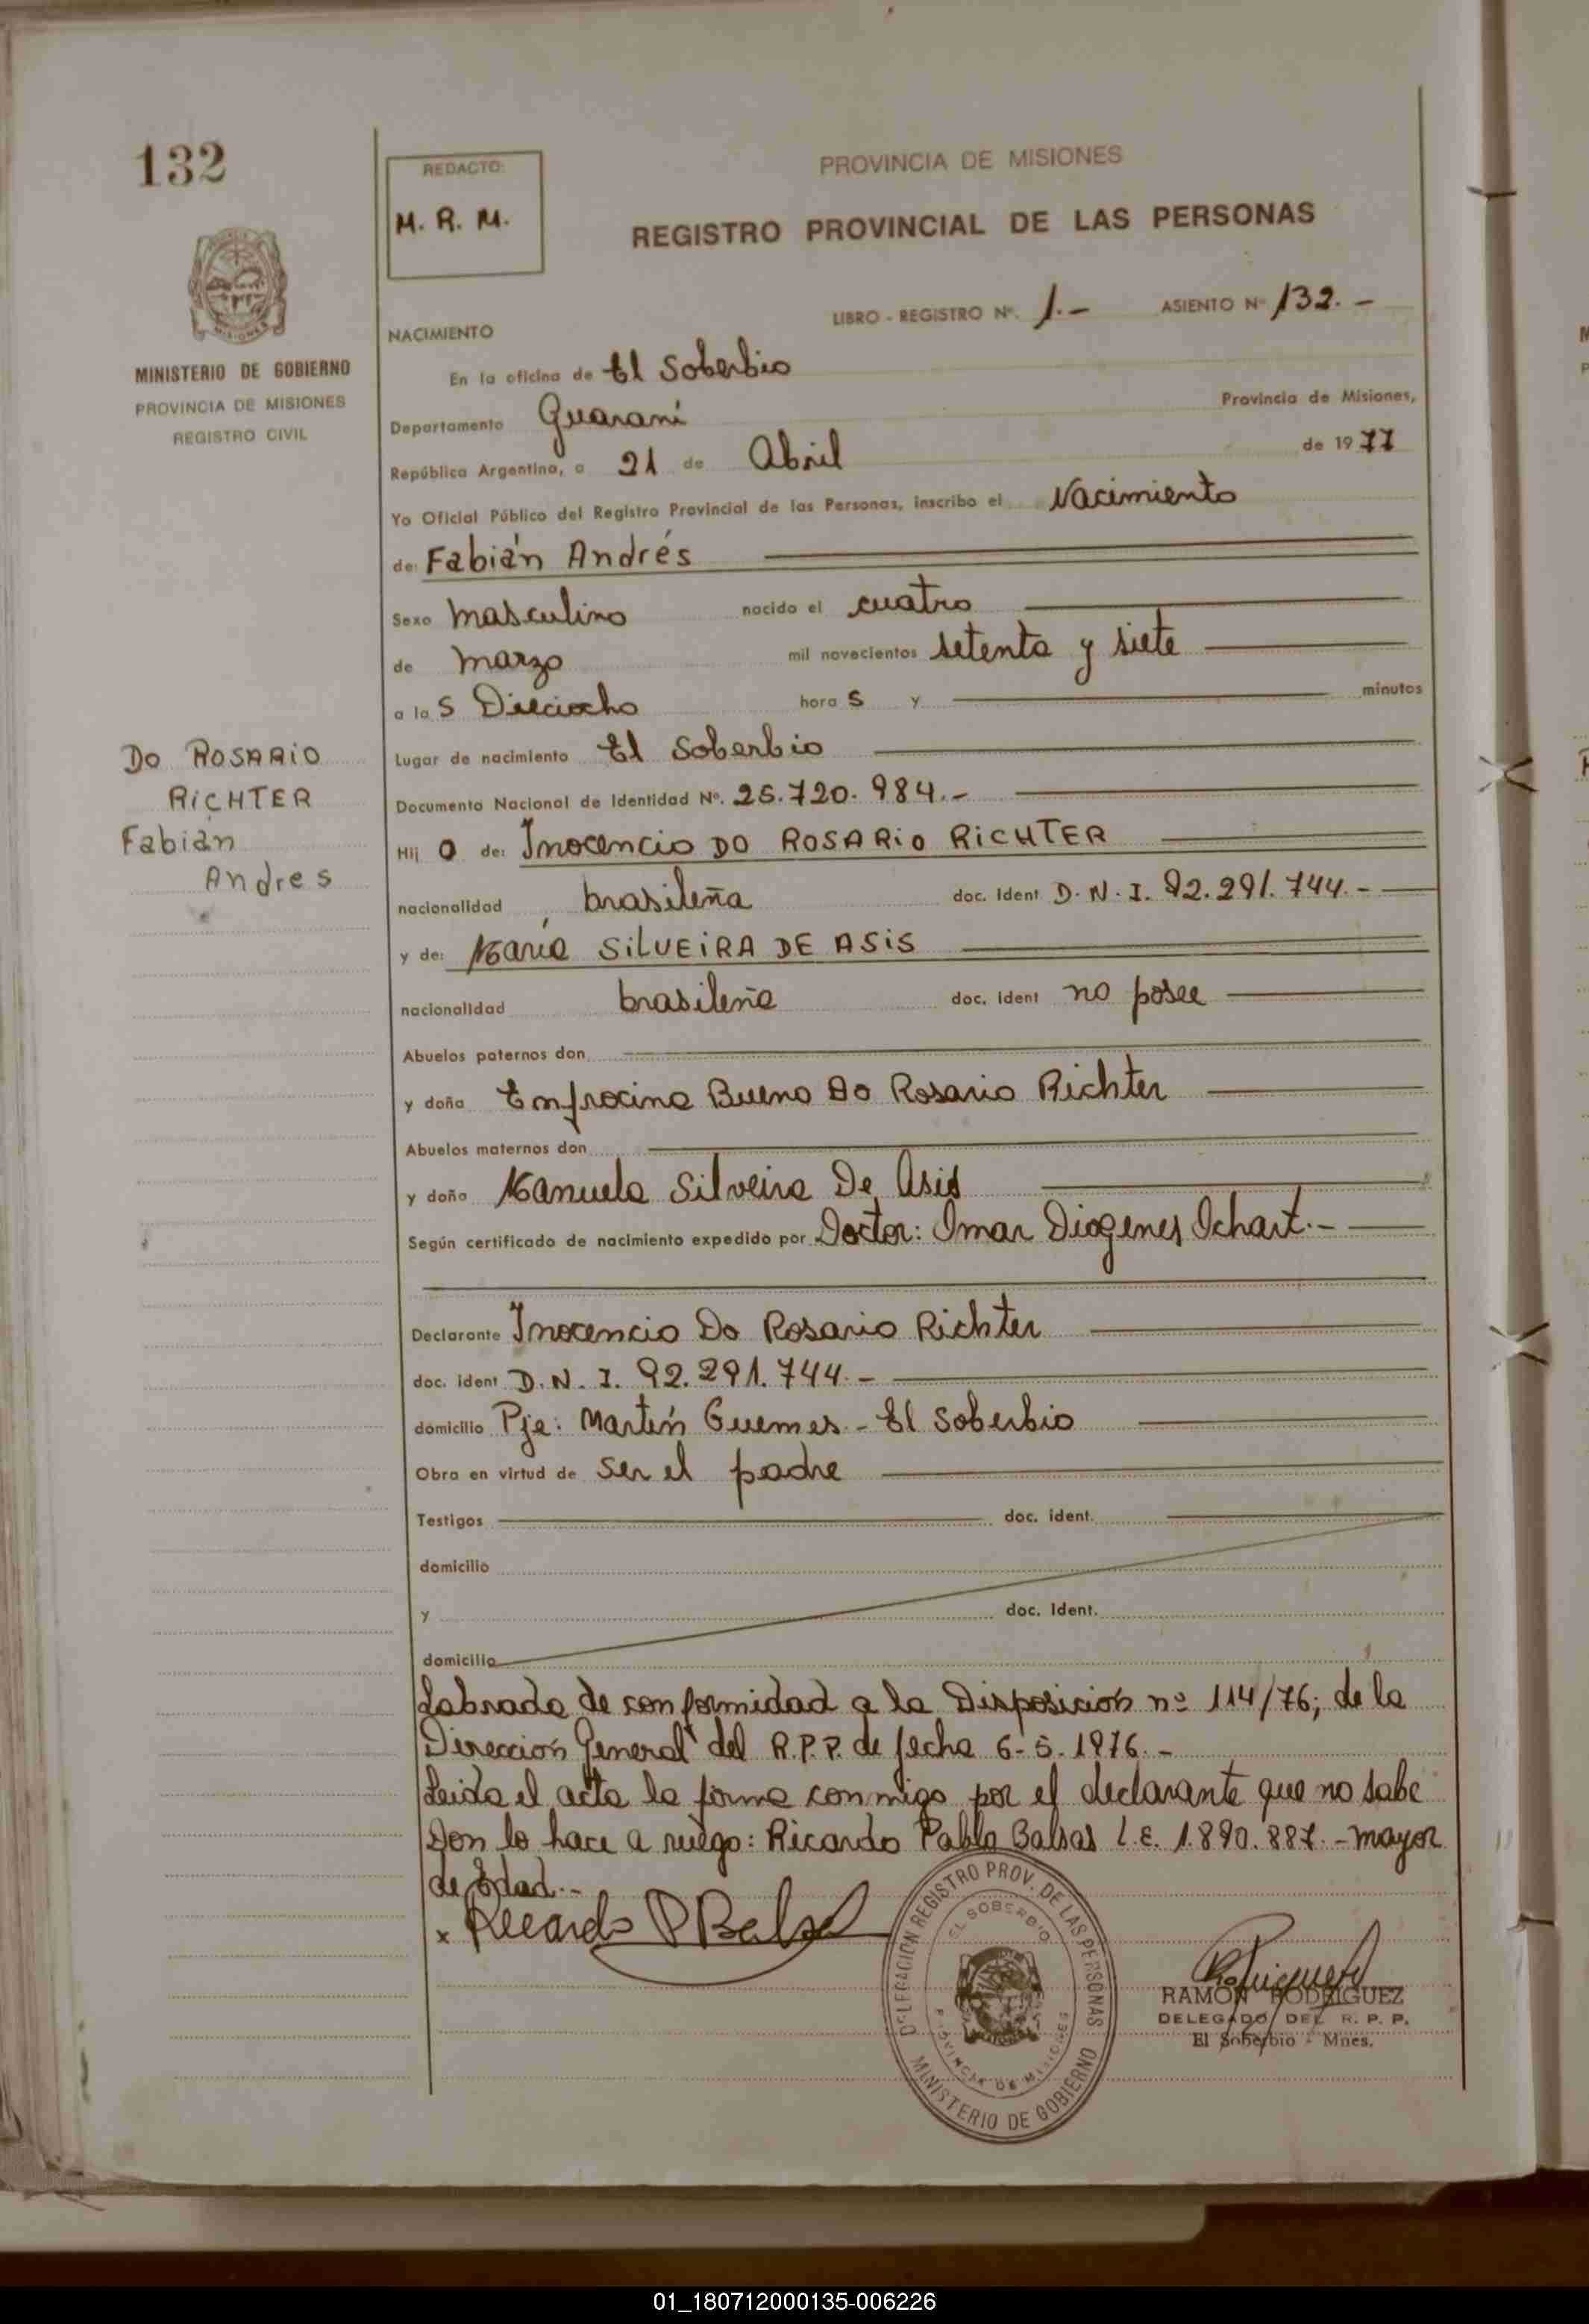 132
REDACTO:
M. R. M.
PROVINCIA DE MISIONES
REGISTRO PROVINCIAL DE LAS PERSONAS
MINISTERIO DE GOBIERNO
PROVINCIA DE MISIONES
REGISTRO CIVIL
LIBRO - REGISTRO Nº. 1.- ASIENTO Nº 132. -
NACIMIENTO
En la oficina de El Soberbio
Departamento Guaraní Provincia de Misiones,
República Argentina, a 21 de Abril de 1977
Yo Oficial Público del Registro Provincial de las Personas, inscribo el Nacimiento
de: Fabián Andrés
Sexo masculino nacido el cuatro
de marzo mil novecientos setenta y siete
a las Dieciocho horas y minutos
DO ROSARIO
RICHTER
Fabián
Andres
Lugar de nacimiento El Soberbio
Documento Nacional de Identidad Nº. 25.720.984.-
Hijo de: Inocencio DO ROSARIO RICHTER
nacionalidad brasileña doc. ident D.N.I. 92.291.744.-
y de: María SILVEIRA DE ASIS
nacionalidad brasileña doc. ident no posee
Abuelos paternos don
y doña Emfrocina Bueno Do Rosario Richter
Abuelos maternos don
y doña Manuela Silveira De Asis
Según certificado de nacimiento expedido por Doctor: Omar Diogenes Ichart.-
Declarante Inocencio Do Rosario Richter
doc. ident D.N.I. 92.291.744.-
domicilio Pje: Martín Guemes - El Soberbio
Obra en virtud de ser el padre
Testigos doc. ident.
domicilio
y doc. Ident.
domicilio
Labrada de conformidad a la Disposición nº 114/76; de la
Dirección General del R.P.P. de fecha 6-5-1976.-
Leida el acta la firma conmigo por el declarante que no sabe
Don lo hace a ruego: Ricardo Pablo Balsas L.E. 1.890.887.- mayor
de Edad.-
x Ricardo P Balsa
DELEGACION REGISTRO PROV. DE LAS PERSONAS
EL SOBERBIO
PROVINCIA DE MISIONES
MINISTERIO DE GOBIERNO
RAMON RODRIGUEZ
DELEGADO DEL R. P. P.
El Soberbio - Mnes.
01_180712000135-006226